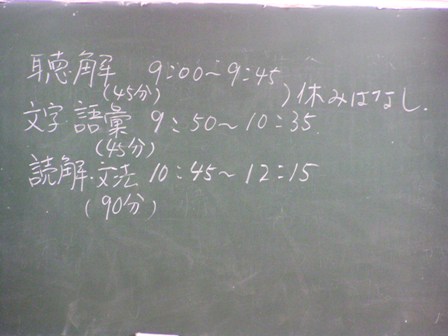 聴解 9:00～9:45
(45分)
)休みはなし.
文字語彙 9:50～10:35
(45分)
読解・文法 10:45～12:15
(90分)